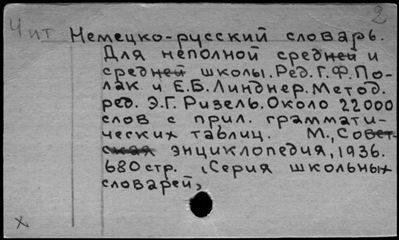 2
Чит Немецко-русский словарь.
Для неполной средней и
средней школы. Ред. Г.Ф. По-
лак и Е.Б. Линднер. Метод.
ред. Э.Г. Ризель. Около 22000
слов с прил. граммати-
ческих таблиц. М., Совет-
ская энциклопедия, 1936.
680 стр. (Серия школьных
словарей)
x